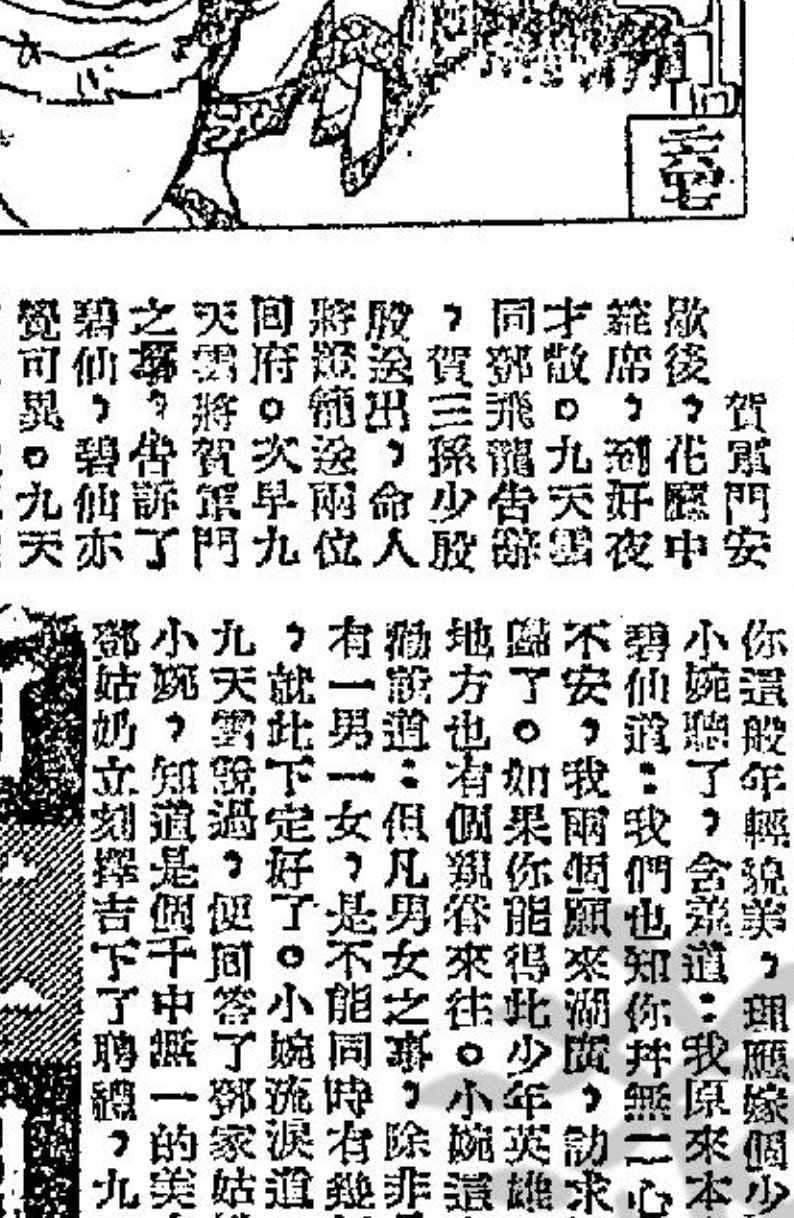 賀軍門安
歇後，花廳中
筵席，到好夜
才散。九天雲
同鄧飛龍告辭
，賀三孫少殷
殷送出，命人
將燈籠送兩位
回府。次早九
天雲將賀軍門
之事，告訴了
碧仙，碧仙亦
覺可異。九天
你這般年輕貌美，理應嫁個少
小婉聽了，含羞道：我原來本
碧仙道：我們也知你并無二心
不安，我兩個願來湖廣，訪求
臨了。如果你能得此少年英雄
地方也有個親眷來往。小婉這
勸說道：但凡男女之事，除非
有一男一女，是不能同時有幾
，就此下定好了。小婉流淚道
九天雲說過，便回答了鄧家姑
小婉，知道是個千中無一的美
鄧姑奶立刻擇吉下了聘禮，九